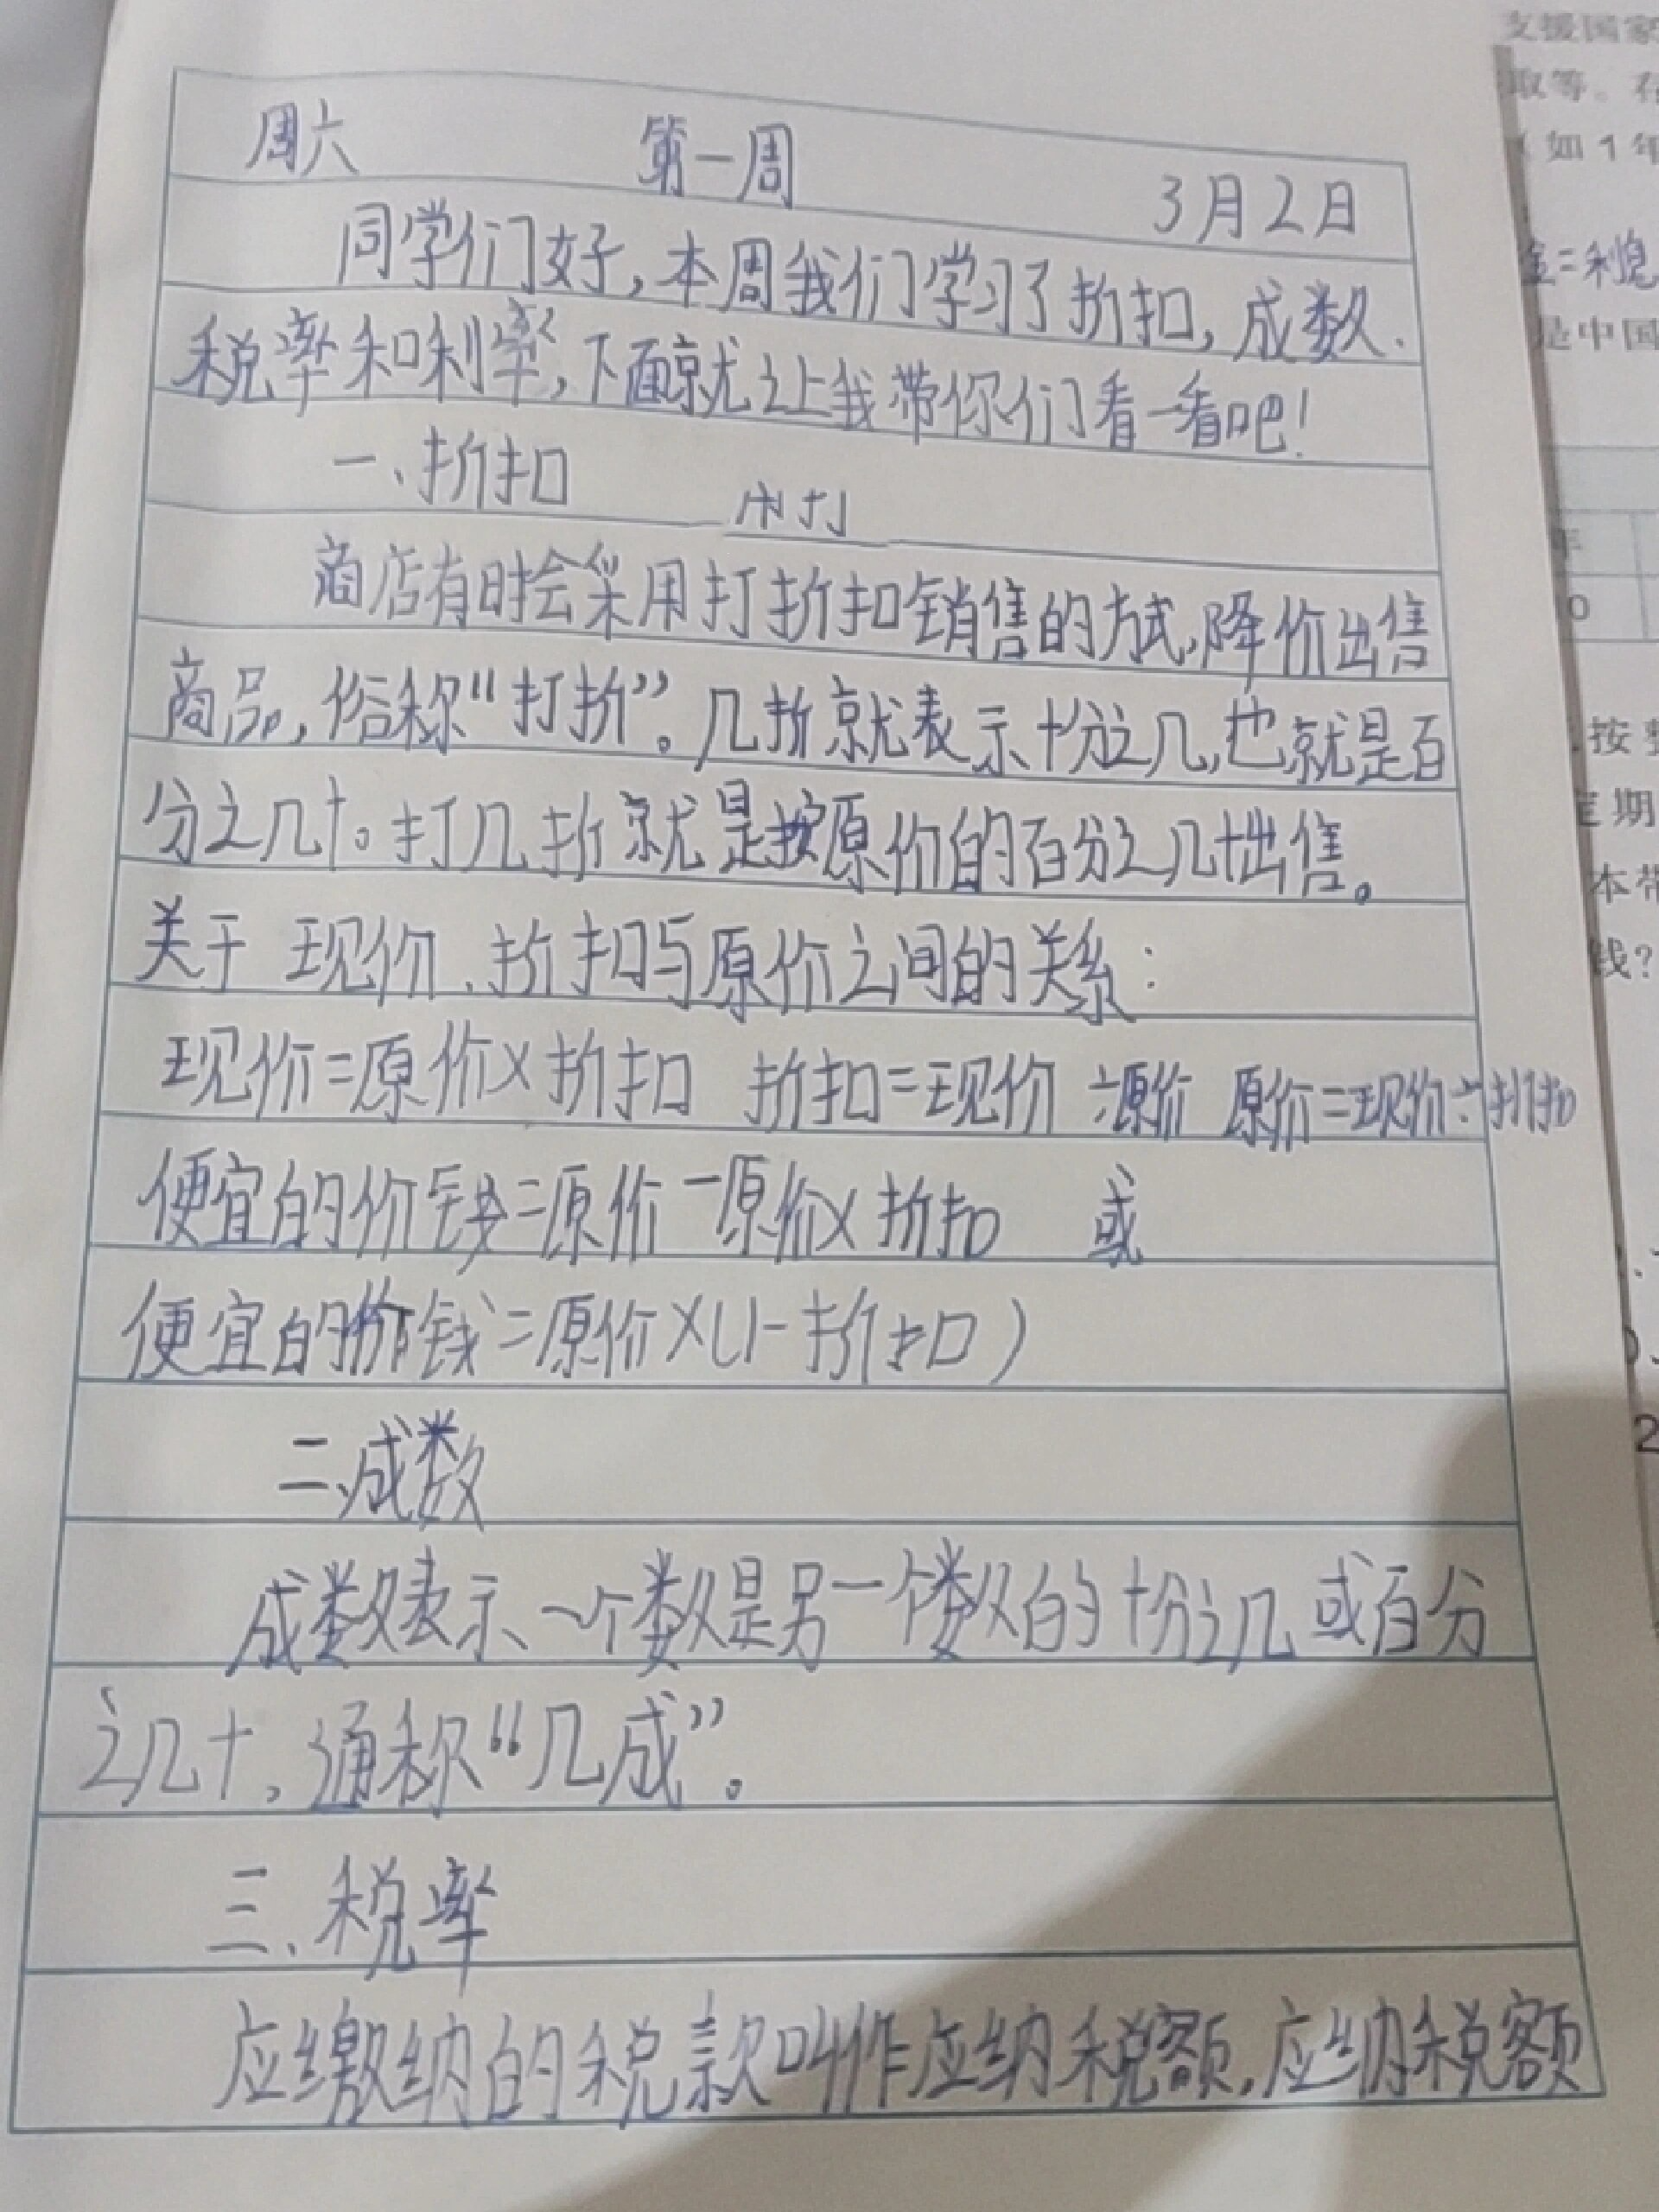 周六 第一周 3月2日
同学们好,本周我们学习了折扣,成数、
税率和利率,下面就让我带你们看一看吧!
一、折扣
商店有时会采用打折扣销售的方式,降价出售
商品,俗称“打折”。几折就表示十分之几,也就是百
分之几十。打几折就是按原价的百分之几十出售。
关于现价、折扣与原价之间的关系:
现价=原价×折扣 折扣=现价÷原价 原价=现价÷折扣
便宜的价钱=原价-原价×折扣 或
便宜的价钱=原价×(1-折扣)
二、成数
成数表示一个数是另一个数的十分之几或百分
之几十,通称“几成”。
三、税率
应缴纳的税款叫作应纳税额,应纳税额
支援国家
取等。存
(如1年
金=利息
是中国
年
0
按整
定期
本带
钱?
2